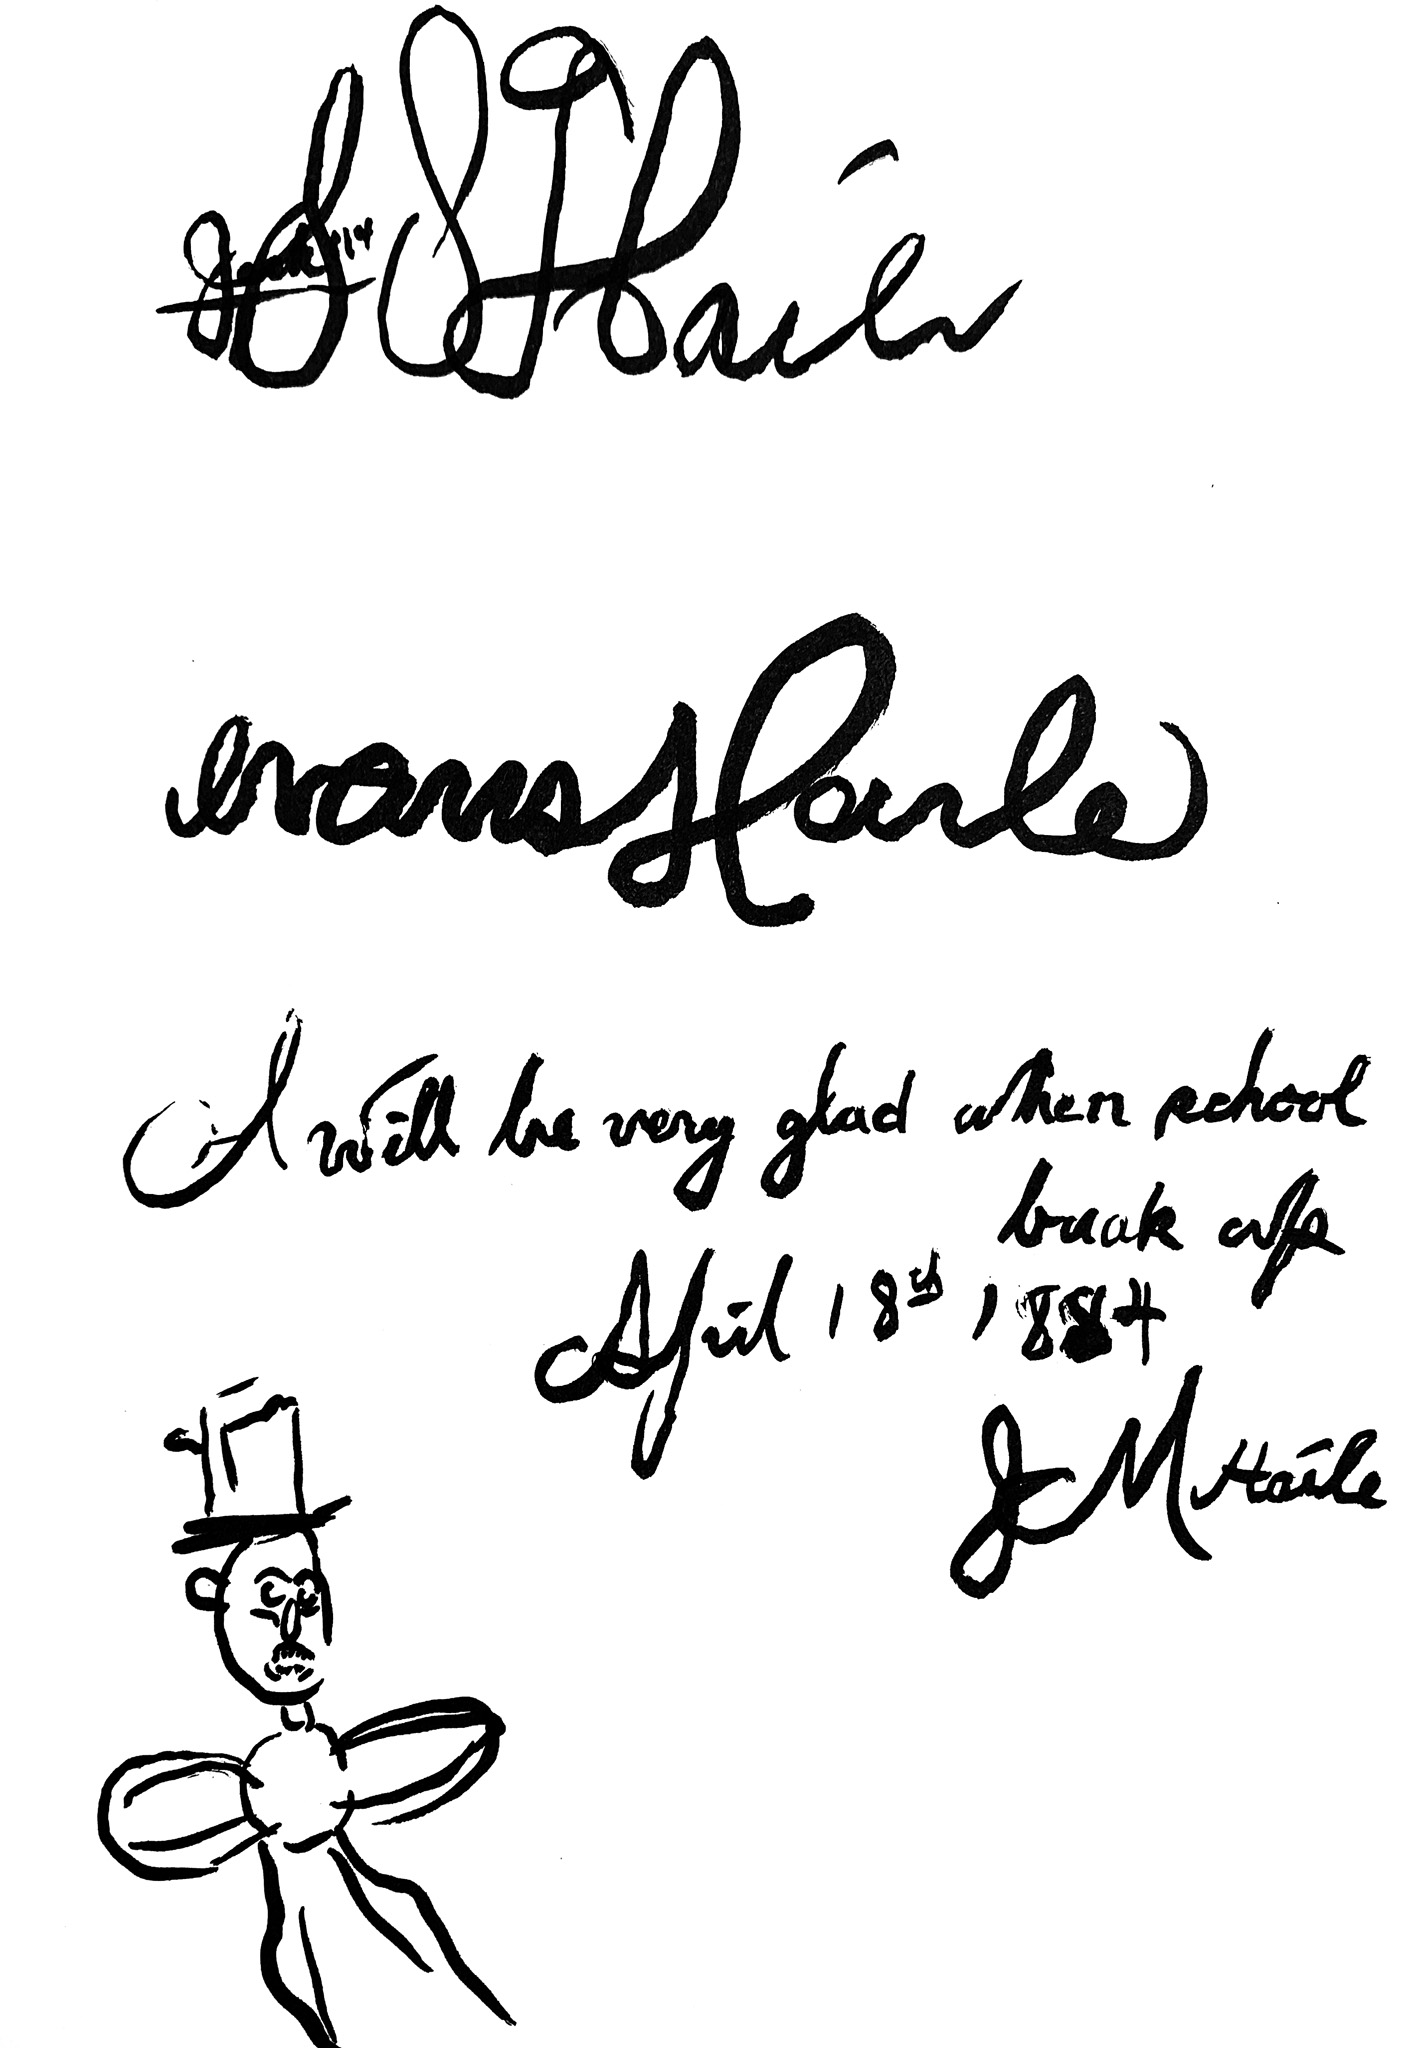 Evans Haile
I will be very glad when school
buak up
April 18th 1884
J M Haile